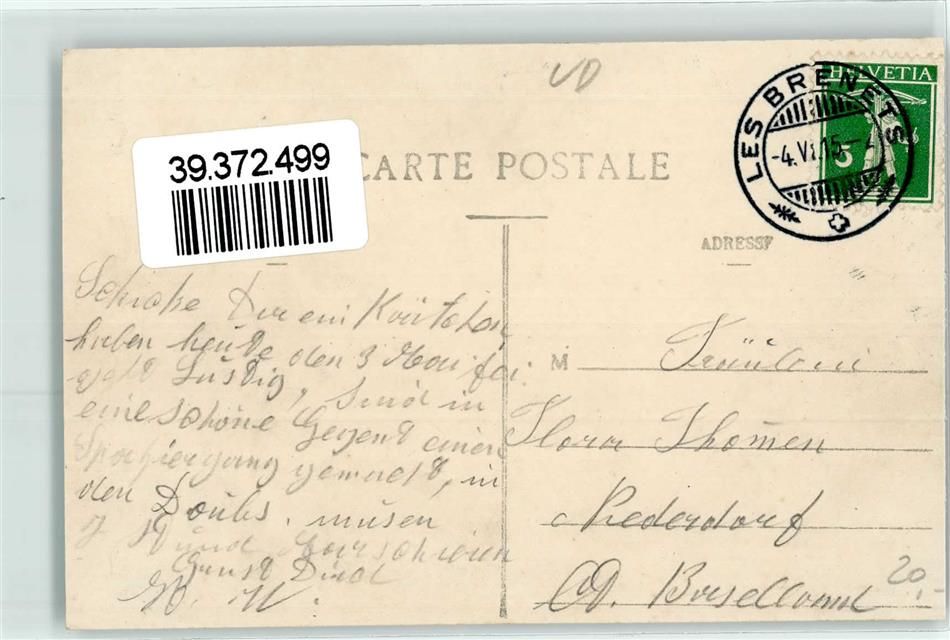 UD
39.372.499
CARTE POSTALE
HELVETIA
5
LES BRENETS
-4.VI.15-
ADRESSE
Schicke Dir ein Kärtchen
haben heute den 3 Mai frei
Lustig, sind in
eine schöne Gegend einen
Spaziergang gemacht, in
den Doubs. müsen
7 Stund Marschieren
Grust Dich
M Fräulein
Flora Thommen
Niederdorf
Ct. Baselland
20.-